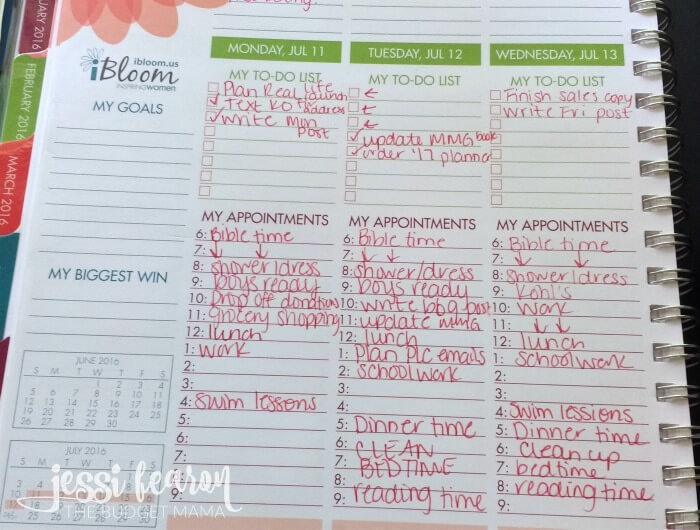 JANUARY 2016
FEBRUARY 2016
MARCH 2016
ibloom.us
iBloom
INSPIRING WOMEN
MY GOALS
MY BIGGEST WIN
JUNE 2016
S M T W T F S
1 2 3 4
5 6 7 8 9 10 11
12 13 14 15 16 17 18
19 20 21 22 23 24 25
26 27 28 29 30
JULY 2016
S M T W T F S
MONDAY, JUL 11
MY TO-DO LIST
Plan Real Life
Launch
Text KO for
address
Write Mon
post
MY APPOINTMENTS
6: Bible time
7: ↓ ↓
8: shower/dress
9: boys ready
10: Drop off donations
11: Grocery shopping
12: lunch
1: Work
2:
3:
4: Swim lessons
5:
6:
7:
8:
9:
TUESDAY, JUL 12
MY TO-DO LIST
←
←
←
update MMG book
order '17 planner
MY APPOINTMENTS
6: Bible time
7: ↓ ↓
8: shower/dress
9: boys ready
10: write bbq post
11: update MMG
12: lunch
1: Plan PLC emails
2: school work
3:
4:
5: Dinner time
6: CLEAN
7: BEDTIME
8: reading time
9:
WEDNESDAY, JUL 13
MY TO-DO LIST
Finish sales copy
Write Fri post
MY APPOINTMENTS
6: Bible time
7: ↓ ↓
8: Shower/dress
9: Kohl's
10: Work
11: ↓ ↓
12: lunch
1: School work
2:
3:
4: Swim lessions
5: Dinner time
6: Clean up
7: bedtime
8: reading time
9:
jessi fearon
THE BUDGET MAMA